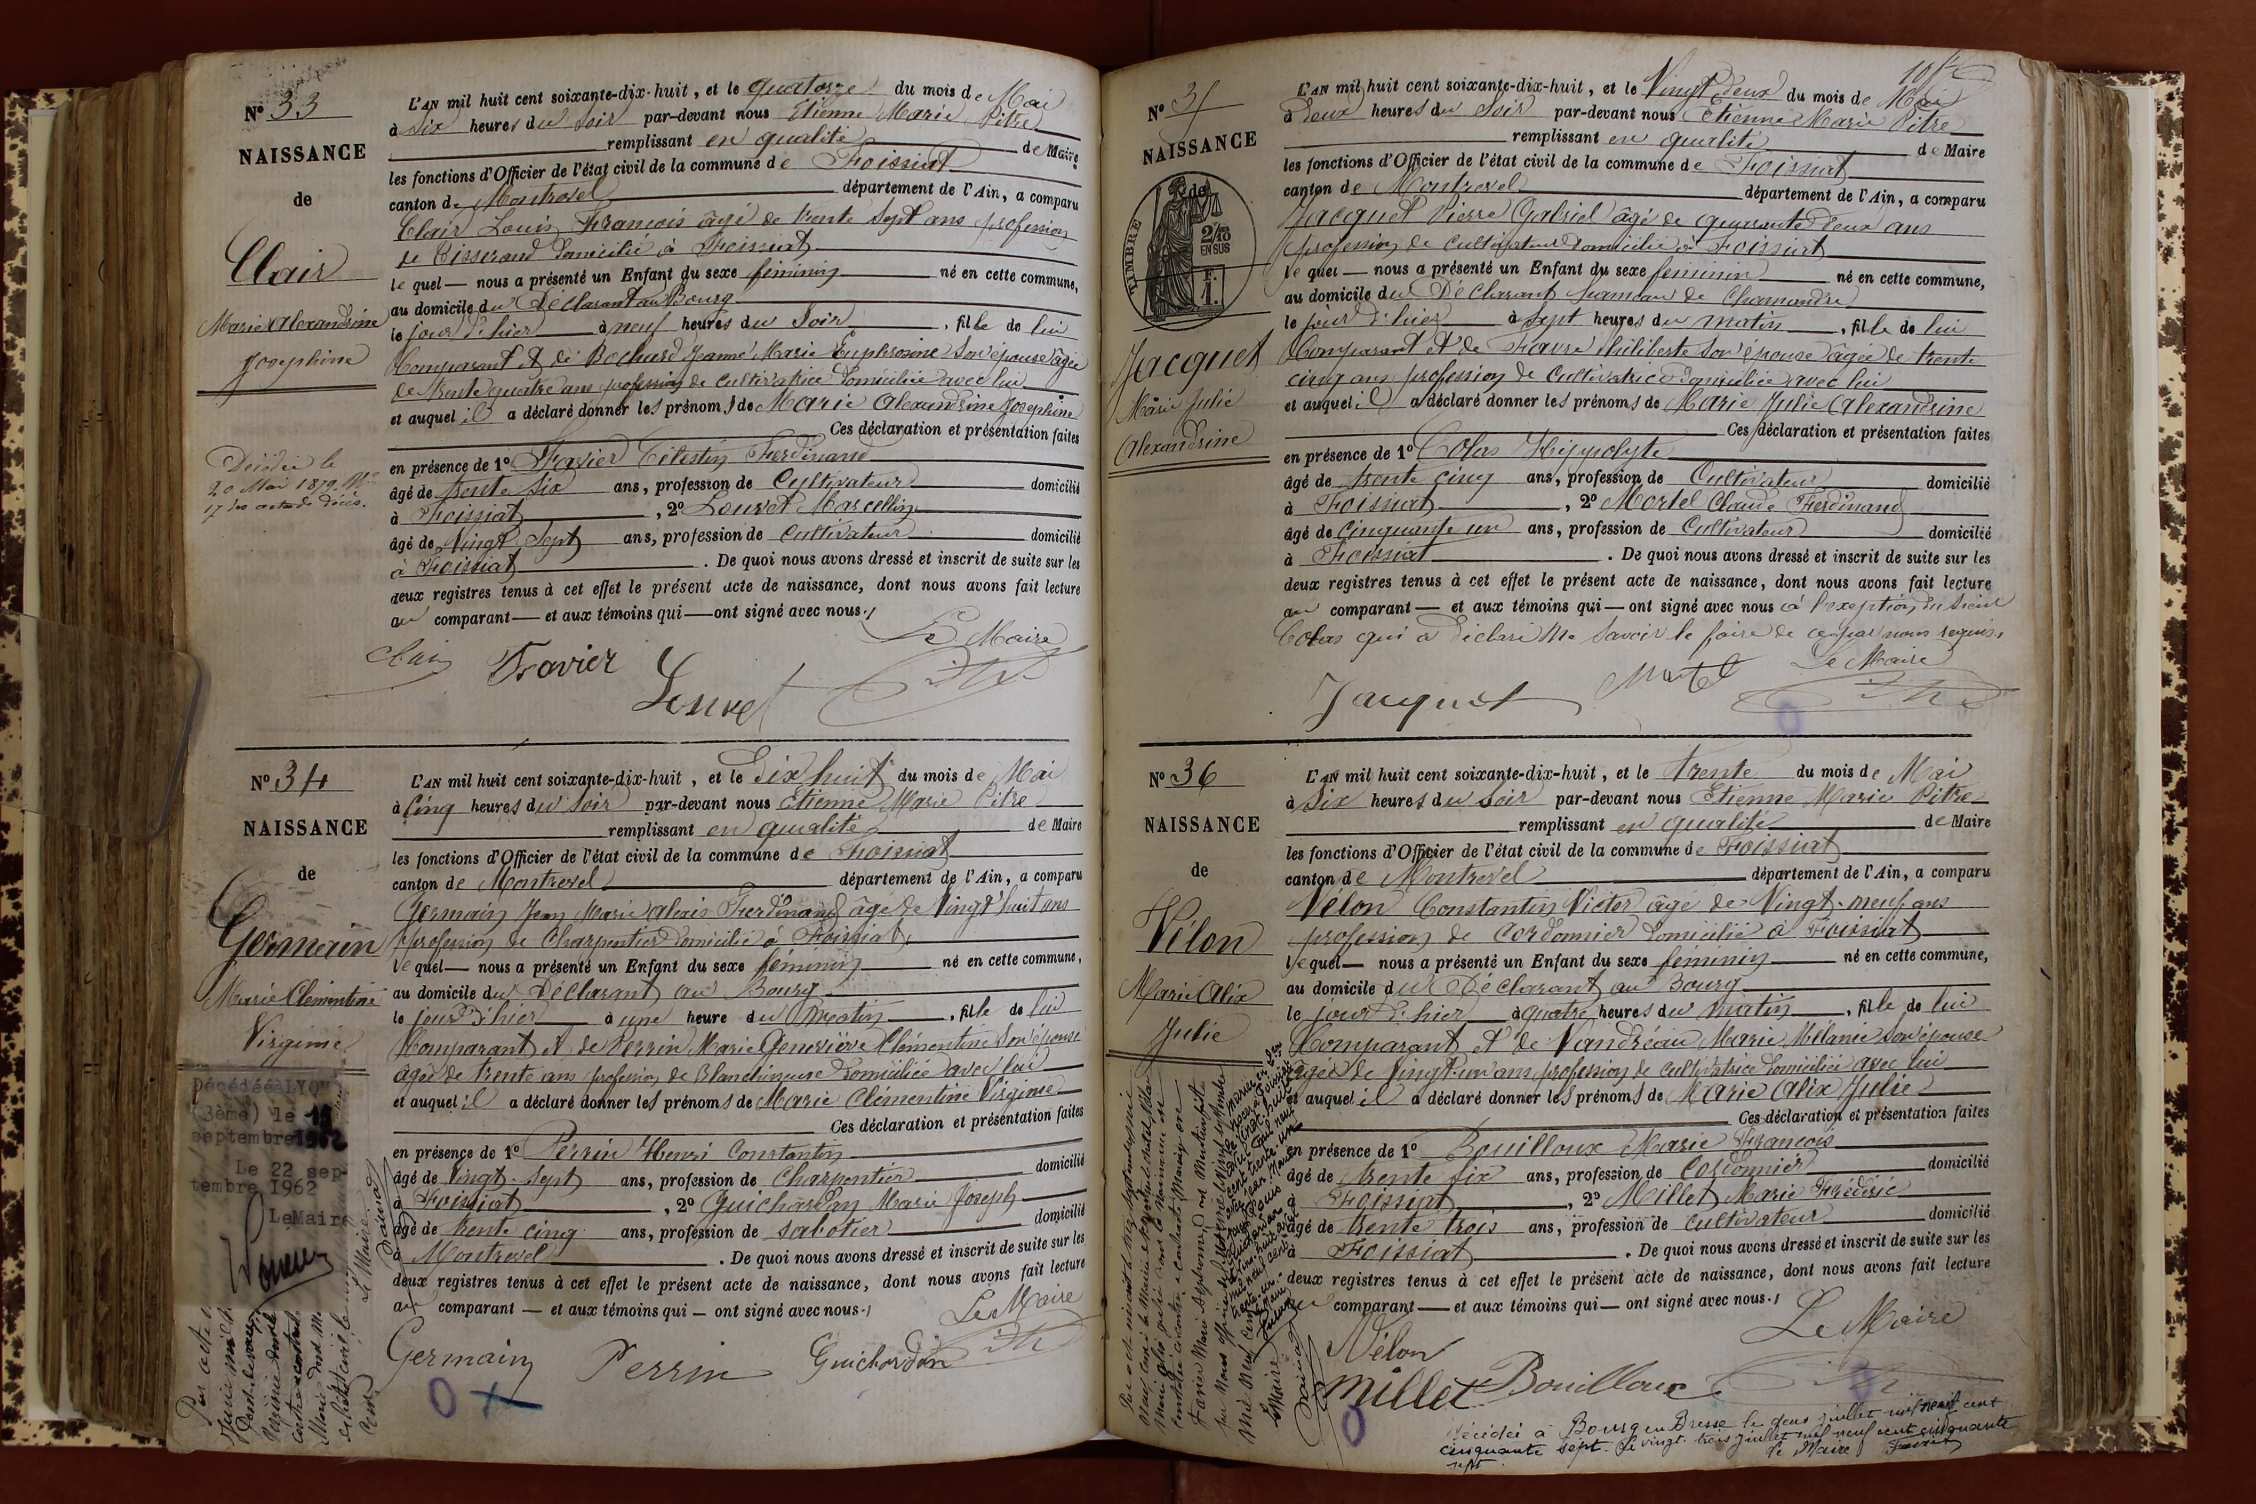 N° 33
NAISSANCE
de
Clair
Marie Alexandrine
Josephine
Décédée le
20 Mai 1879. N°
17 des actes de décès.
L'AN mil huit cent soixante-dix-huit, et le quatorze du mois de Mai
à Six heures du Soir par-devant nous Etienne Marie Pitre
remplissant en qualité de Maire
les fonctions d'Officier de l'état civil de la commune de Foissiat
canton de Montrevel département de l'Ain, a comparu
Clair Louis François âgé de trente Sept ans profession
de Tisserand domicilié à Foissiat
lequel — nous a présenté un Enfant du sexe féminin né en cette commune,
au domicile du Déclarant au Bourg
le jour d'hier à neuf heures du Soir, fille de lui
Comparant et de Bochard Jeanne Marie Euphrosine Son épouse âgée
de trente quatre ans profession de cultivatrice domiciliée avec lui
et auquel il a déclaré donner les prénoms de Marie Alexandrine Josephine
Ces déclaration et présentation faites
en présence de 1° Favier Célestin Ferdinand
âgé de trente Six ans, profession de Cultivateur domicilié
à Foissiat, 2° Louvet Marcellin
âgé de Vingt Sept ans, profession de Cultivateur domicilié
à Foissiat. De quoi nous avons dressé et inscrit de suite sur les
deux registres tenus à cet effet le présent acte de naissance, dont nous avons fait lecture
au comparant — et aux témoins qui — ont signé avec nous./
Le Maire
Clair Favier Pitre
Louvet
N° 34
NAISSANCE
de
Germain
Marie Clémentine
Virginie
Décédée à LYON
(3ème) le 15
septembre 1962
Le 22 sep-
tembre 1962
Le Maire
L'AN mil huit cent soixante-dix-huit, et le Dix huit du mois de Mai
à Cinq heures du Soir par-devant nous Etienne Marie Pitre
remplissant en qualité de Maire
les fonctions d'Officier de l'état civil de la commune de Foissiat
canton de Montrevel département de l'Ain, a comparu
Germain Jean Marie Alexis Ferdinand âgé de Vingt huit ans
profession de Charpentier domicilié à Foissiat
lequel — nous a présenté un Enfant du sexe féminin né en cette commune,
au domicile du Déclarant au Bourg
le jour d'hier à une heure du Matin, fille de lui
Comparant et de Perrin Marie Geneviève Clémentine Son épouse
âgée de trente ans profession de Blanchisseuse domiciliée avec lui
et auquel il a déclaré donner les prénoms de Marie Clémentine Virginie
Ces déclaration et présentation faites
en présence de 1° Perrin Henri Constantin
âgé de Vingt-Sept ans, profession de Charpentier domicilié
à Foissiat, 2° Guichardon Marie Joseph
âgé de trente cinq ans, profession de sabotier domicilié
à Montrevel. De quoi nous avons dressé et inscrit de suite sur les
deux registres tenus à cet effet le présent acte de naissance, dont nous avons fait lecture
au comparant — et aux témoins qui — ont signé avec nous./
Le Maire
Germain Perrin Guichardon Pitre
N° 35
NAISSANCE
de
TIMBRE
2/10
EN SUS
F.
1.
Jacquet
Marie Julie
Alexandrine
L'AN mil huit cent soixante-dix-huit, et le Vingt deux du mois de Mai
à Deux heures du Soir par-devant nous Etienne Marie Pitre
remplissant en qualité de Maire
les fonctions d'Officier de l'état civil de la commune de Foissiat
canton de Montrevel département de l'Ain, a comparu
Jacquet Pierre Gabriel âgé de quarante deux ans
profession de Cultivateur domicilié à Foissiat
lequel — nous a présenté un Enfant du sexe féminin né en cette commune,
au domicile du Déclarant hameau de Chamandre
le jour d'hier à Sept heures du matin, fille de lui
Comparant et de Favre Philiberte Son épouse âgée de trente
cinq ans profession de Cultivatrice domiciliée avec lui
et auquel il a déclaré donner les prénoms de Marie Julie Alexandrine
Ces déclaration et présentation faites
en présence de 1° Colas Hippolyte
âgé de trente cinq ans, profession de Cultivateur domicilié
à Foissiat, 2° Mortel Claude Ferdinand
âgé de Cinquante un ans, profession de Cultivateur domicilié
à Foissiat. De quoi nous avons dressé et inscrit de suite sur les
deux registres tenus à cet effet le présent acte de naissance, dont nous avons fait lecture
au comparant — et aux témoins qui — ont signé avec nous à l'exeption du Sieur
Colas qui a déclaré ne Savoir le faire de ce par nous requis.
Le Maire
Jacquet Mortel Pitre
N° 36
NAISSANCE
de
Vélon
Marie Alix
Julie
L'AN mil huit cent soixante-dix-huit, et le trente du mois de Mai
à Six heures du Soir par-devant nous Etienne Marie Pitre
remplissant en qualité de Maire
les fonctions d'Officier de l'état civil de la commune de Foissiat
canton de Montrevel département de l'Ain, a comparu
Vélon Constantin Victor âgé de Vingt-neuf ans
profession de Cordonnier domicilié à Foissiat
lequel — nous a présenté un Enfant du sexe féminin né en cette commune,
au domicile du Déclarant au Bourg
le jour d'hier à quatre heures du matin, fille de lui
Comparant et de Vandréau Marie Mélanie son épouse
âgée de Vingt un ans profession de cultivatrice domiciliée avec lui
et auquel il a déclaré donner les prénoms de Marie Alix Julie
Ces déclaration et présentation faites
en présence de 1° Bouilloux Marie François
âgé de trente Six ans, profession de Cordonnier domicilié
à Foissiat, 2° Millet Marie Frédéric
âgé de trente trois ans, profession de cultivateur domicilié
à Foissiat. De quoi nous avons dressé et inscrit de suite sur les
deux registres tenus à cet effet le présent acte de naissance, dont nous avons fait lecture
au comparant — et aux témoins qui — ont signé avec nous./
Le Maire
Vélon
Millet Bouilloux Pitre
Décédée à Bourg en Bresse le deux juillet mil neuf cent
cinquante sept. Le vingt trois juillet mil neuf cent cinquante
sept. Le Maire